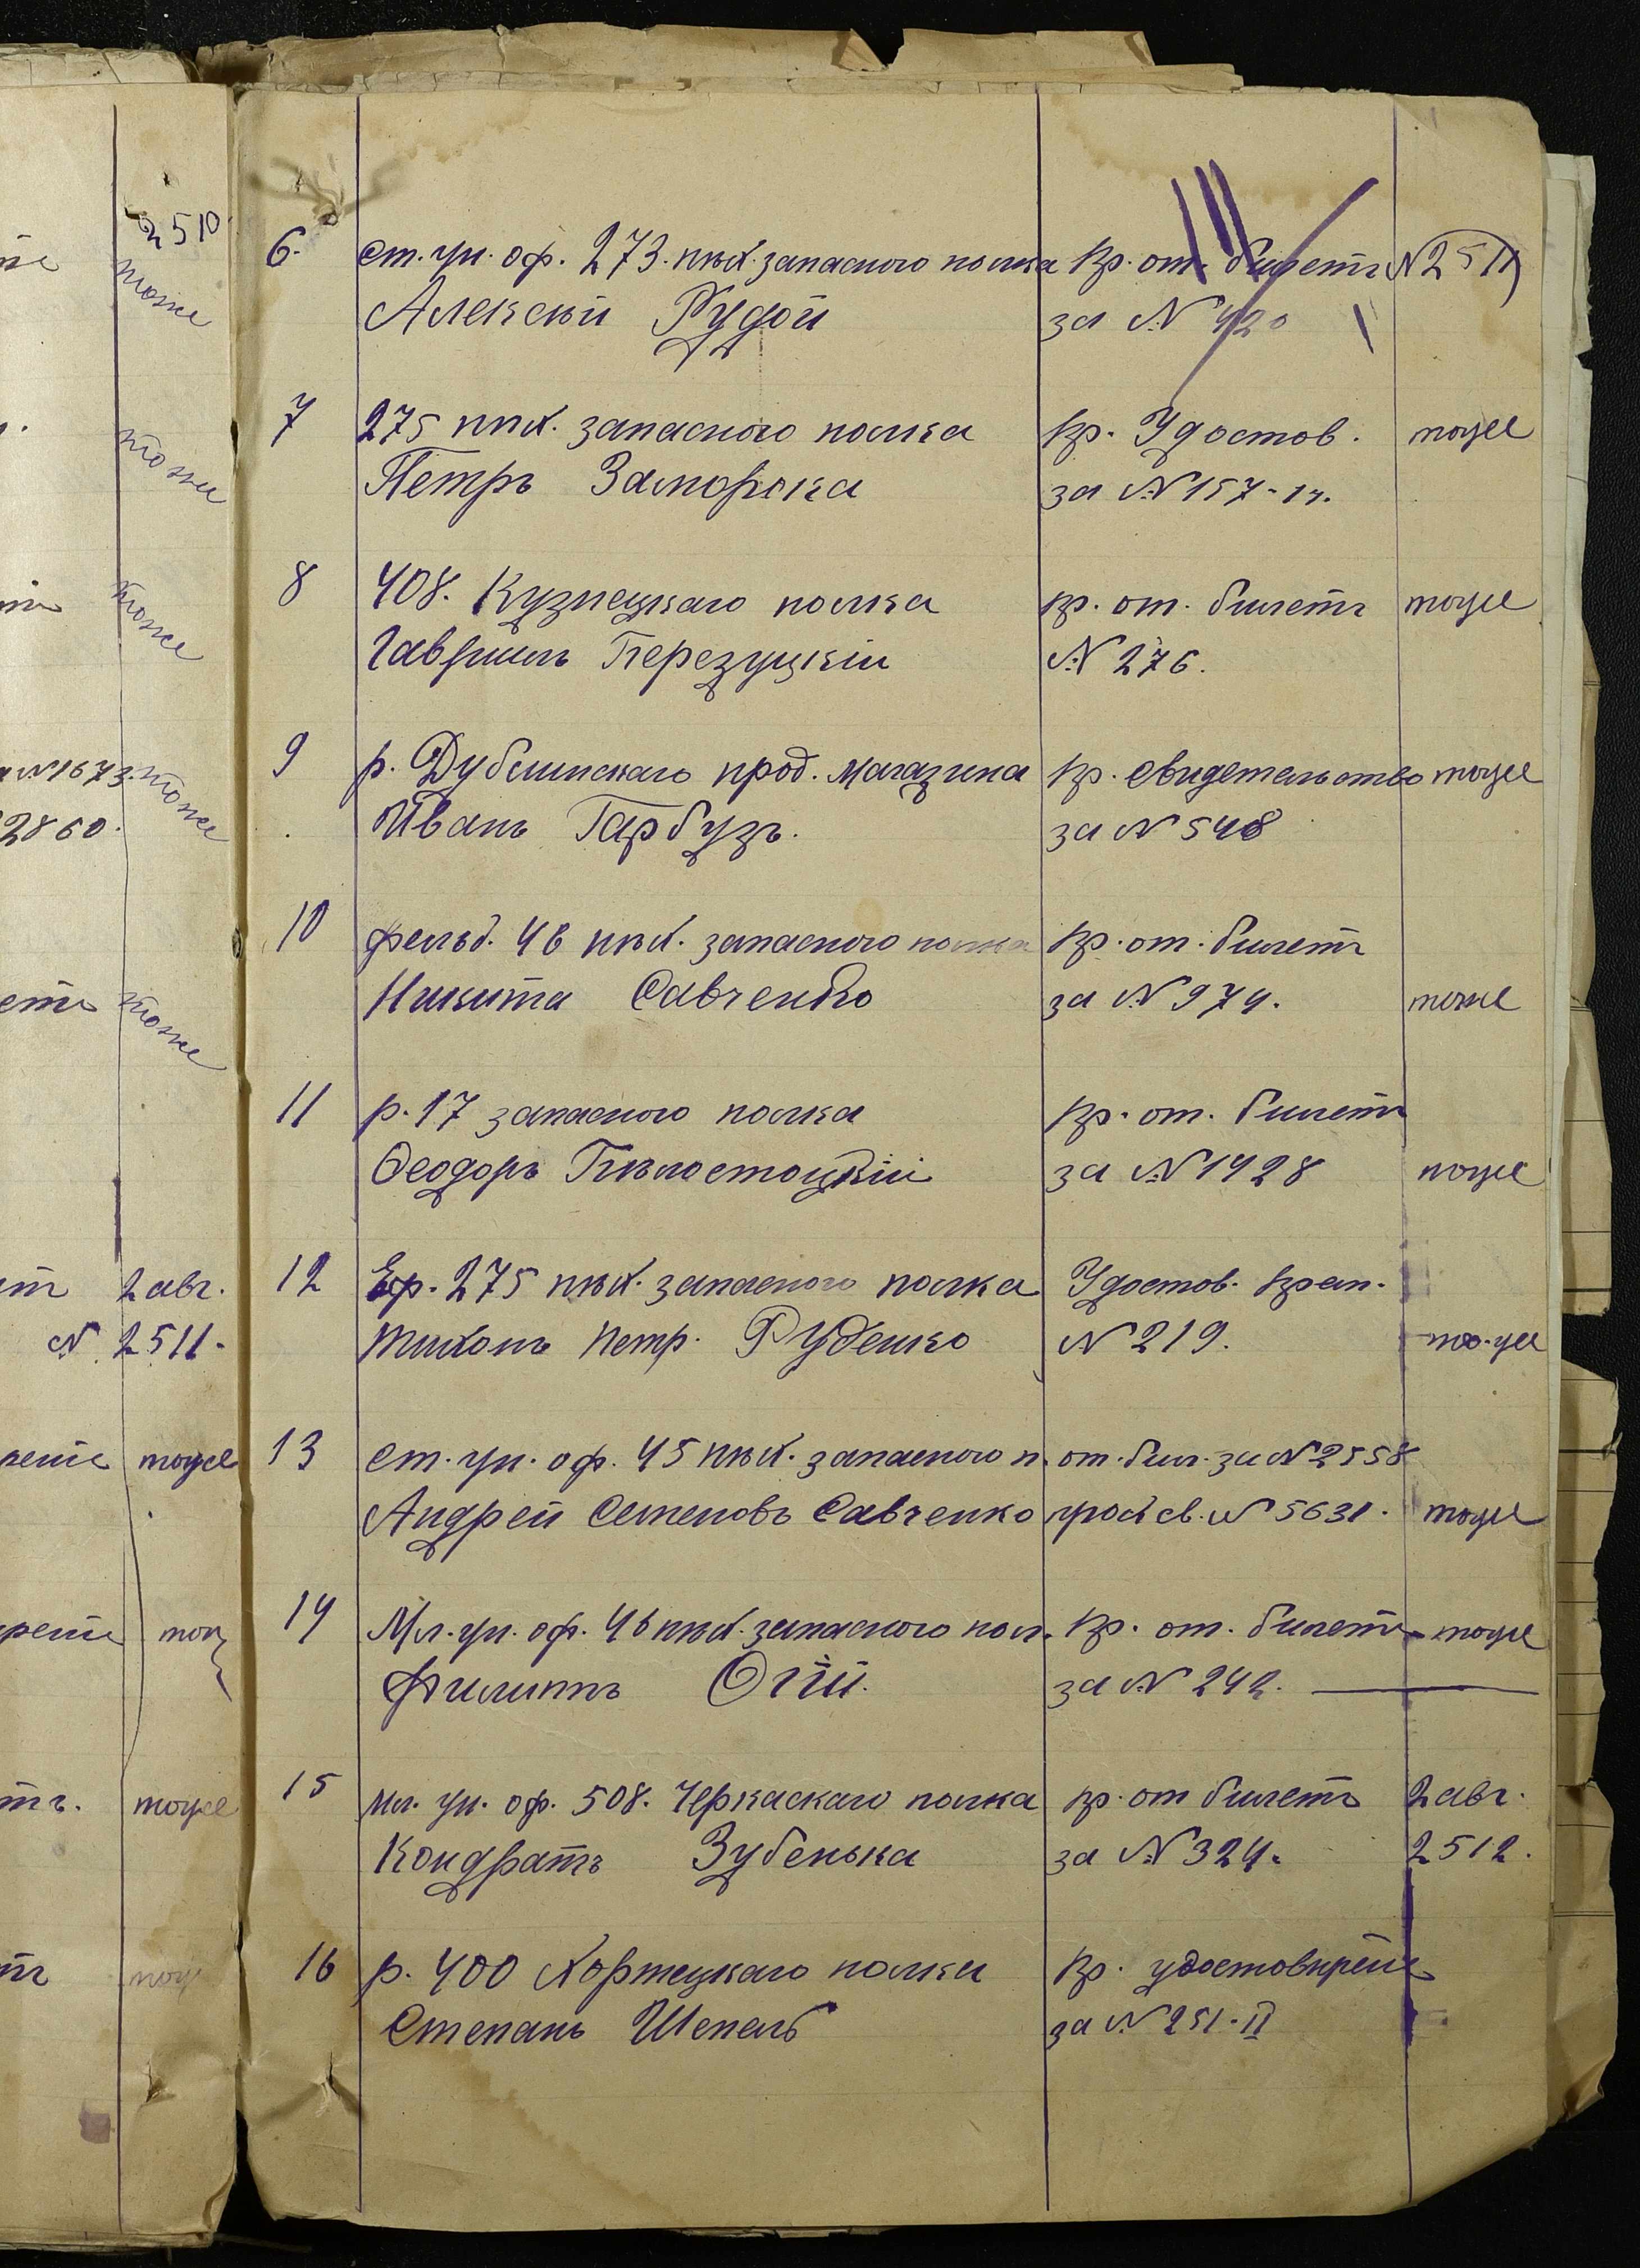 2510
тоже
тоже
тоже
№1673. тоже
2860.
тоже
2 авг.
N 2511.
тоже
тоже
6. Ст. ун. оф. 273. пѣх. запасного полка Кр. от. билетъ N 2511
Алексѣй Рудой за № 420
7 275 пѣх. запасного полка Кр. Удостов. тоже
Петръ Заморока за № 157-
8 408. Кузнецкаго полка Кр. от. билетъ тоже
Гавріилъ Березуцкій № 276.
9 р. Дублинскаго прод. магазина Кр. свидетельство тоже
Иванъ Гарбузъ. за № 548
10 фельд. 46 пѣх. запасного полка Кр. от. билетъ
Никита Савченко за № 974. тоже
11 р. 17 запасного полка Кр. от. билетъ
Ѳеодоръ Бѣлостоцкій за № 1428 тоже
12 Еф. 275 пѣх. запасного полка Удостов. врем.
Тихонъ Петр. Руденко № 219. то-же
13 Ст. ун. оф. 45 пѣх. запасного п. от. бил. за № 2558
Андрей Семеновъ Савченко св. № 5631. тоже
14 Мл. ун. оф. 46 пѣх. запасного пол. Кр. от. билетъ тоже
Филиппъ Огій. за № 242.
15 Мл. ун. оф. 508. Черкаскаго полка Кр. от билетъ 2 авг.
Кондратъ Зубенька за № 324. 2512.
16 р. 400 Хортецкаго полка Кр. удостовѣрені
Степанъ Шепель за № 251-II